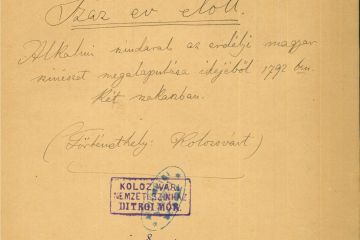 Száz év előtt.
Alkalmi színdarab az erdélyi magyar
színészet megalapítása idejéből 1792 ben.
két szakaszban.
(Történethely: Kolozsvárt)
KOLOZSVÁRI
NEMZETI SZINHÁZ
DITRÓI MÓR.